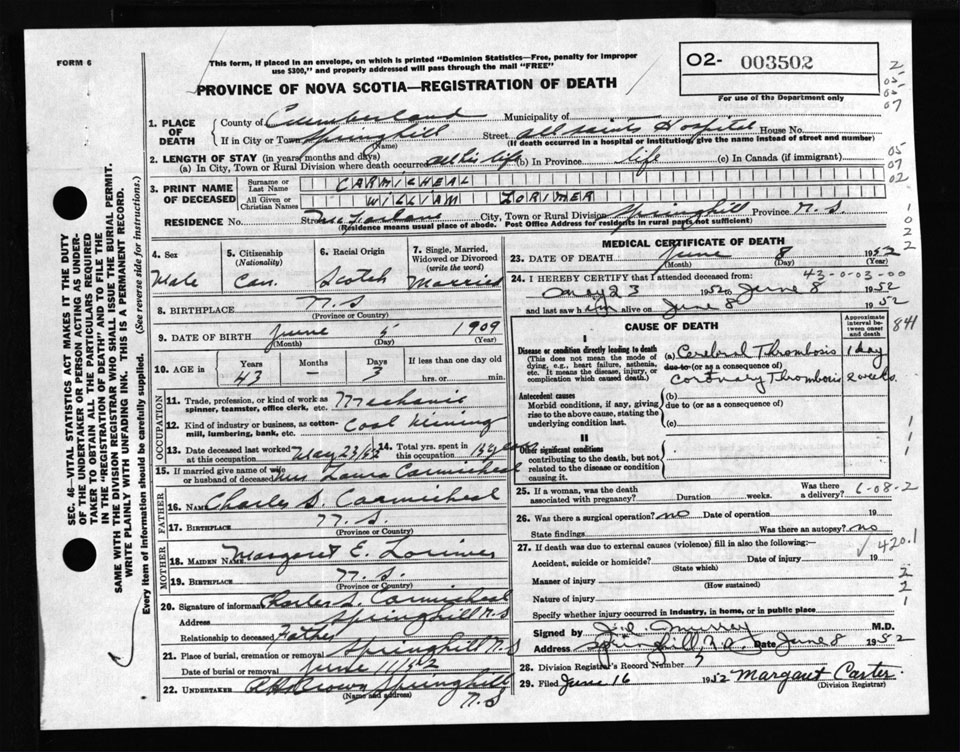 FORM 6
This form, if placed in an envelope, on which is printed "Dominion Statistics—Free, penalty for improper
use $300," and properly addressed will pass through the mail "FREE"
PROVINCE OF NOVA SCOTIA—REGISTRATION OF DEATH
O2- 003502
For use of the Department only
2
05
05
07
1. PLACE OF DEATH
County of Cumberland Municipality of
If in City or Town Springhill Street All Saints Hospital House No.
(Name) (If death occurred in a hospital or institution, give the name instead of street and number)
2. LENGTH OF STAY (in years, months and days)
(a) In City, Town or Rural Division where death occurred all his life (b) In Province life (c) In Canada (if immigrant)
05
07
02
3. PRINT NAME OF DECEASED
Surname or Last Name CARMICHEAL
All Given or Christian Names WILLIAM LORIMER
RESIDENCE No. Street McFarlane City, Town or Rural Division Springhill Province N.S.
(Residence means usual place of abode. Post Office Address for residents in rural parts not sufficient)
1022
4. Sex
Male
5. Citizenship
(Nationality)
Can.
6. Racial Origin
Scotch
7. Single, Married, Widowed or Divorced
(write the word)
Married
8. BIRTHPLACE N.S
(Province or Country)
9. DATE OF BIRTH June 5 1909
(Month) (Day) (Year)
10. AGE in Years Months Days If less than one day old
43 – 3 hrs. or min.
OCCUPATION
11. Trade, profession, or kind of work as
spinner, teamster, office clerk, etc. Mechanic
12. Kind of industry or business, as cotton-
mill, lumbering, bank, etc. Coal Mining
13. Date deceased last worked
at this occupation May 23/52
14. Total yrs. spent in
this occupation
15. If married give name of wife
or husband of deceased Mrs Laura Carmicheal
FATHER
16. Name Charles S. Carmicheal
17. BIRTHPLACE N.S.
(Province or Country)
MOTHER
18. MAIDEN NAME Margaret E. Lorimer
19. BIRTHPLACE N.S.
(Province or Country)
20. Signature of informant Charles S. Carmicheal
Address Springhill N.S
Relationship to deceased Father
21. Place of burial, cremation or removal Springhill N.S
Date of burial or removal June 11/52
22. UNDERTAKER Brown Springhill
(Name and address) N.S
MEDICAL CERTIFICATE OF DEATH
23. DATE OF DEATH June 8 1952
(Month) (Day) (Year)
43-0-03-00
24. I HEREBY CERTIFY that I attended deceased from:
May 23 1952 to June 8 1952
and last saw him alive on June 8 1952
CAUSE OF DEATH
Approximate interval between onset and death
841
I
Disease or condition directly leading to death
(This does not mean the mode of
dying, e.g., heart failure, asthenia,
etc. It means the disease, injury, or
complication which caused death.)
(a) Cerebral Thrombosis 1 day
due to (or as a consequence of)
Coronary Thrombosis 2 weeks.
Antecedent causes
Morbid conditions, if any, giving
rise to the above cause, stating the
underlying condition last.
(b)
due to (or as a consequence of)
(c)
II
Other significant conditions
contributing to the death, but not
related to the disease or condition
causing it.
1
1
1
25. If a woman, was the death
associated with pregnancy? Duration weeks. Was there
a delivery?
6-08-2
26. Was there a surgical operation? no Date of operation 19
State findings Was there an autopsy? no
27. If death was due to external causes (violence) fill in also the following:—
420.1
Accident, suicide or homicide? Date of injury 19
(State which)
Manner of injury
(How sustained)
Nature of injury
Specify whether injury occurred in industry, in home, or in public place
2
2
1
Signed by Murray M.D.
Address Springhill, N.S. Date June 8 1952
28. Division Registrar's Record Number
29. Filed June 16 1952 Margaret Carter
(Division Registrar)
SEC. 46—VITAL STATISTICS ACT MAKES IT THE DUTY
OF THE UNDERTAKER OR PERSON ACTING AS UNDER-
TAKER TO OBTAIN ALL THE PARTICULARS REQUIRED
IN THE "REGISTRATION OF DEATH" AND TO FILE THE
SAME WITH THE DIVISION REGISTRAR WHO SHALL ISSUE THE BURIAL PERMIT.
WRITE PLAINLY WITH UNFADING INK. THIS IS A PERMANENT RECORD.
Every item of information should be carefully supplied. (See reverse side for instructions.)